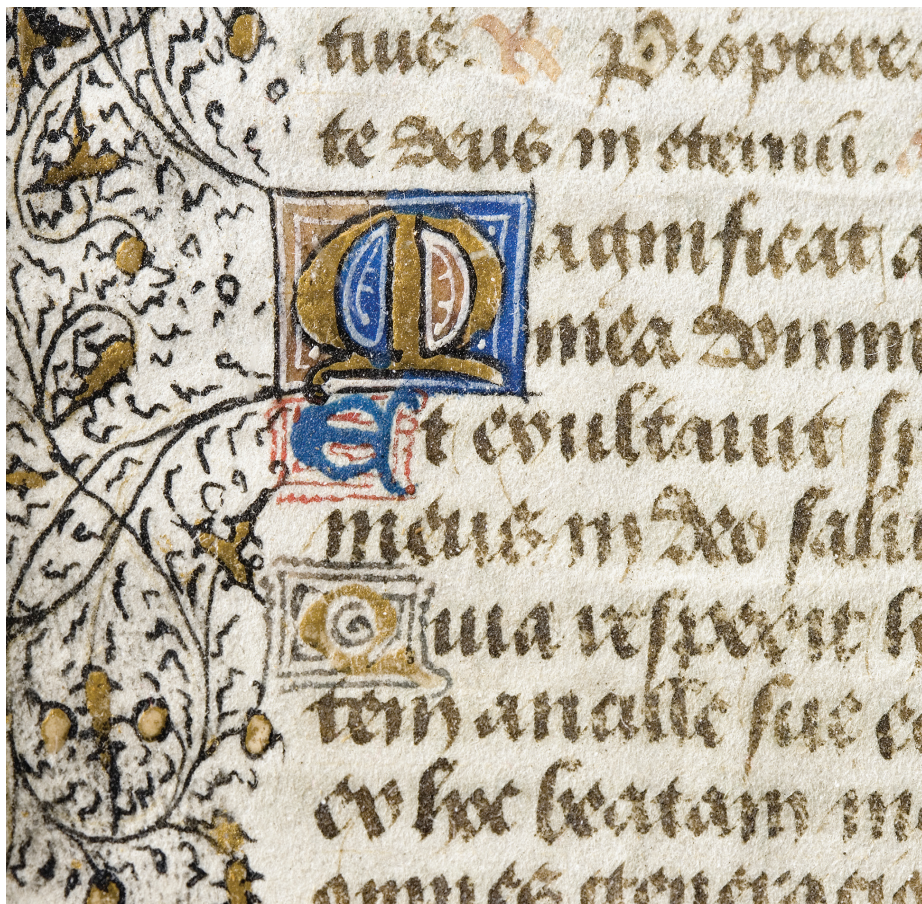 tiuē. V Proptere
te deus in eternū.
Magnificat a
mea domin
Et exultauit sp
meus in deo salu
Quia respexit h
tem ancille sue e
ex hoc beatam m
omnes generac